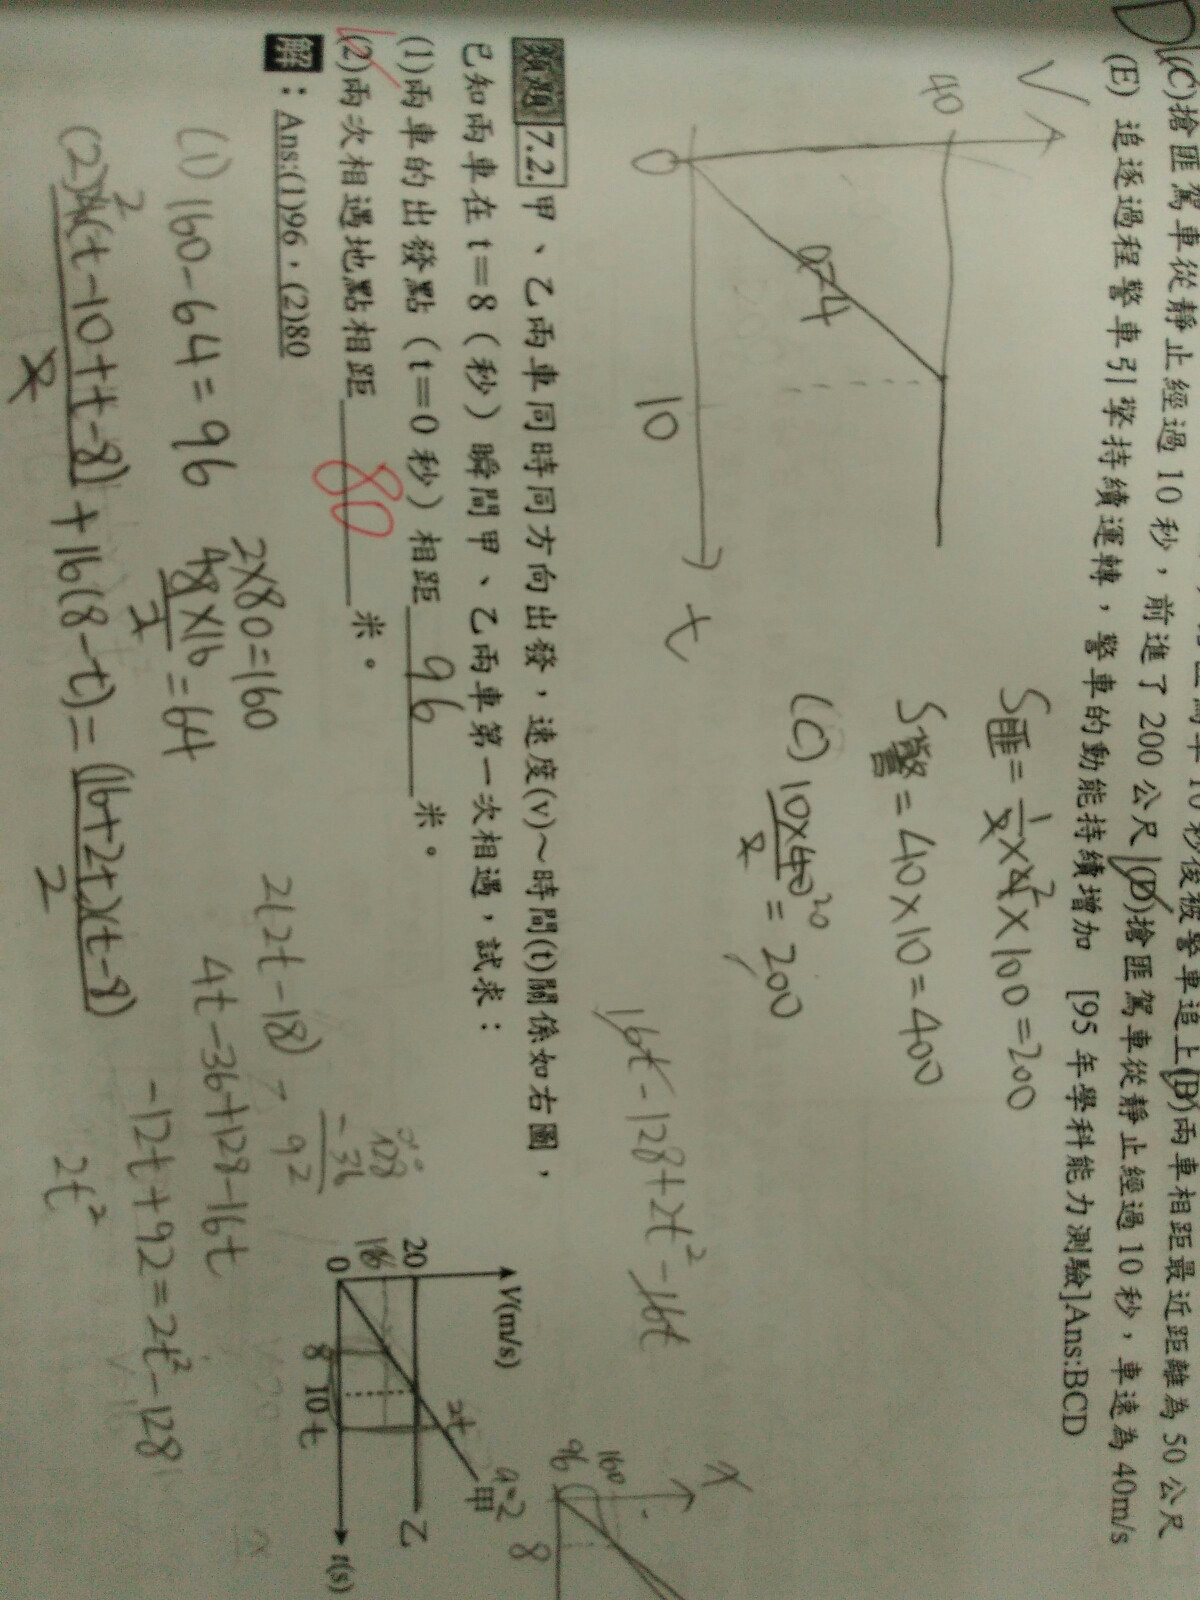 (C)搶匪駕車從靜止經過 10 秒，前進了 200 公尺 (D)搶匪駕車從靜止經過 10 秒，車速為 40m/s
(E) 追逐過程警車引擎持續運轉，警車的動能持續增加 [95 年學科能力測驗]Ans:BCD
V
40
a=4
0
10
t
S匪=1/2×4×100=200
S警=40×10=400
(C) 10×40/2=200
16t-128+2t²-16t
類題 7.2. 甲、乙兩車同時同方向出發，速度(v)～時間(t)關係如右圖，
已知兩車在 t＝8（秒）瞬間甲、乙兩車第一次相遇，試求：
(1)兩車的出發點（t＝0 秒）相距 96 米。
(2)兩次相遇地點相距 80 米。
解：Ans:(1)96，(2)80
(1) 160-64=96
2×80=160
8×16/2=64
2(2t-18)
4t-36+128-16t
128
-36
92
-12t+92=2t²-128
2t²
+16(8-t)=(16+2t)(t-8)/2
V(m/s)
20
16
0
8
10
t
t(s)
2t
a=2
甲
乙
x
160
96
8